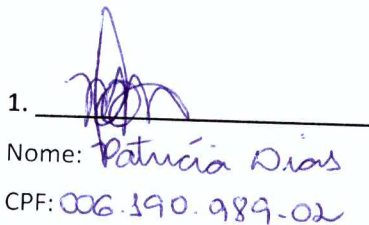 1.
Nome: Patrícia Dias
CPF: 006.190.989-02